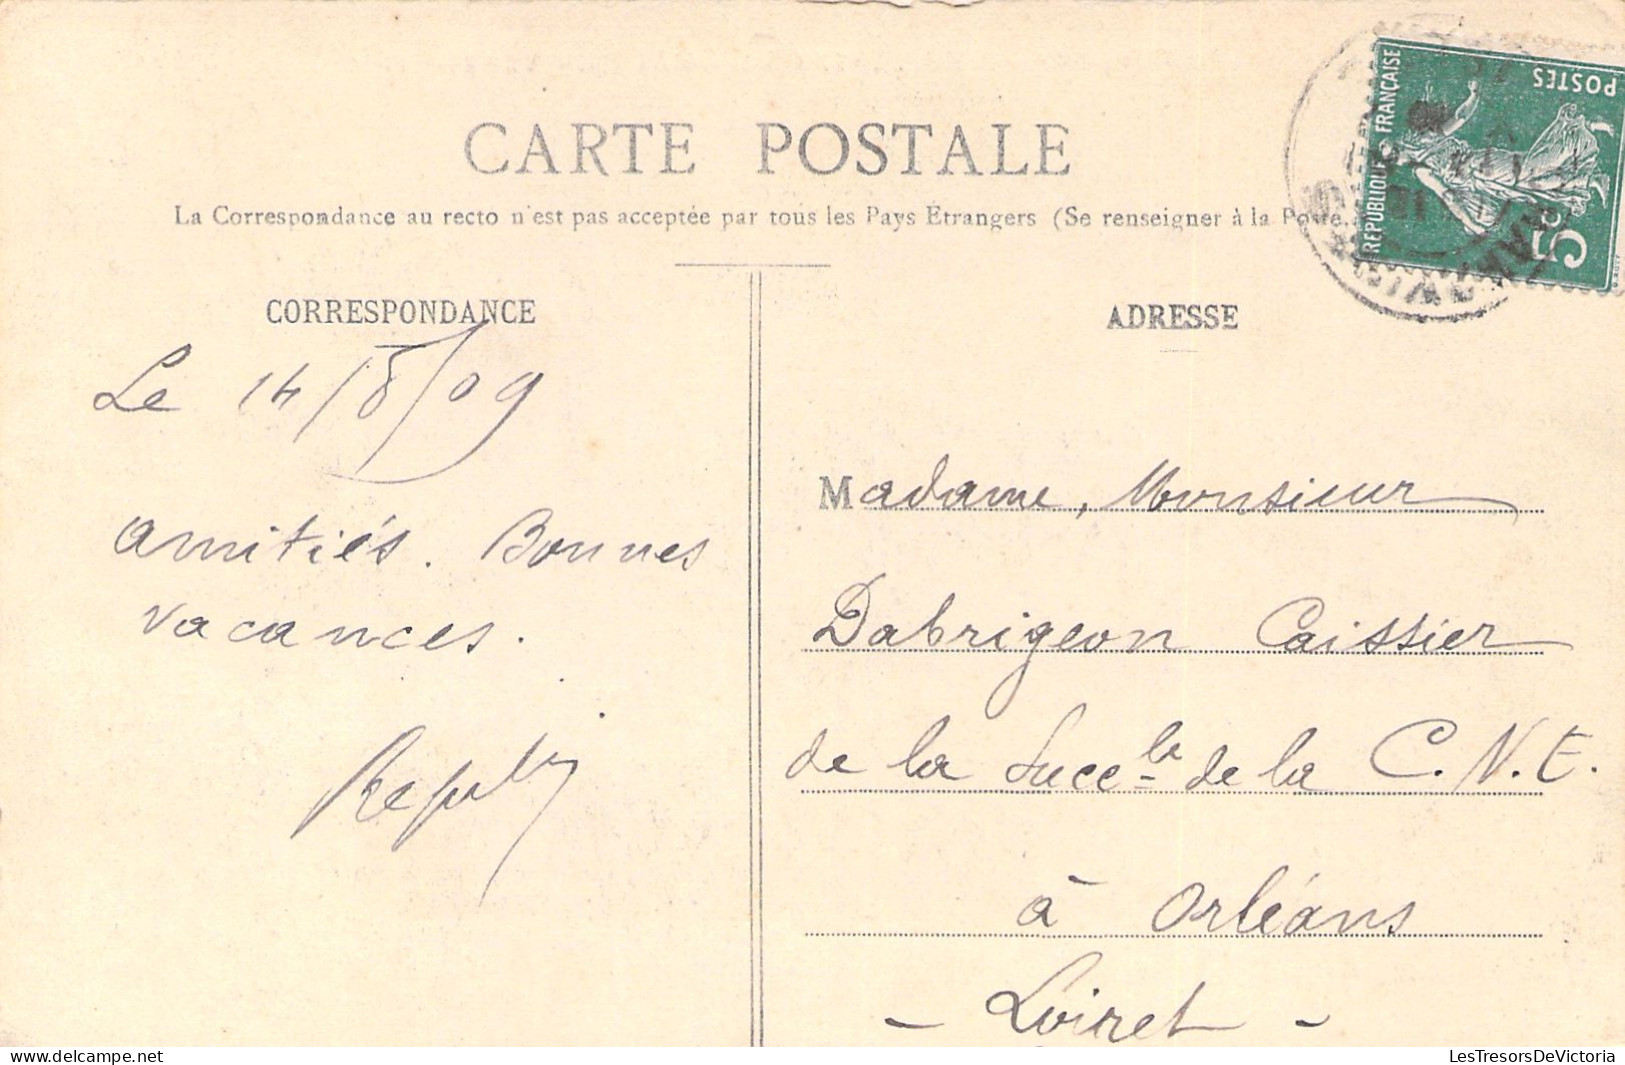 CARTE POSTALE
La Correspondance au recto n'est pas acceptée par tous les Pays Étrangers (Se renseigner à la Poste
CORRESPONDANCE
Le 14/8/09
amitiés. Bonnes
vacances.
ADRESSE
Madame, Monsieur
Dabrigeon Caissier
de la Succle de la C.N.E.
à Orléans
- Loiret -
RÉPUBLIQUE FRANÇAISE
POSTES
5c
LesTresorsDeVictoria